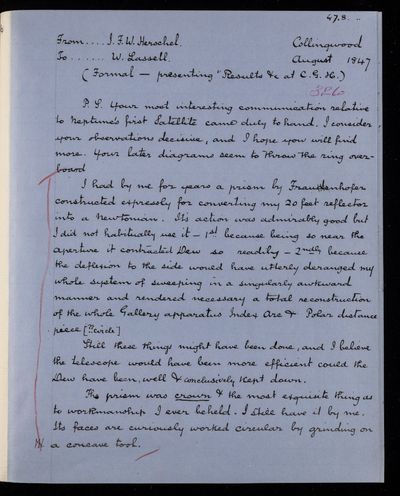 47.8.
From.... J.F.W. Herschel. Collingwood
To....... W. Lassell. August 1847
(Formal — presenting "Results &c at C.G.H.)
P.S. Your most interesting communication relative
to Neptune's first Satellite came duly to hand. I consider
your observations decisive, and I hope you will find
more. Your later diagrams seem to throw the ring over-
board
I had by me for years a prism by Frauenhofer
constructed expressly for converting my 20 feet reflector
into a Newtonian. Its action was admirably good but
I did not habitually use it – 1st because being so near the
aperture it contracted Dew so readily – 2ndly because
the deflexion to the side would have utterly deranged my
whole system of sweeping in a singularly awkward
manner and rendered necessary a total reconstruction
of the whole Gallery apparatus Index Arc & Polar distance
piece [?circle]
Still these things might have been done, and I believe
the telescope would have been more efficient could the
Dew have been, well & conclusively kept down.
The prism was crown & the most exquisite thing as
to workmanship I ever beheld. I still have it by me.
Its faces are curiously worked circular by grinding on
a concave tool.